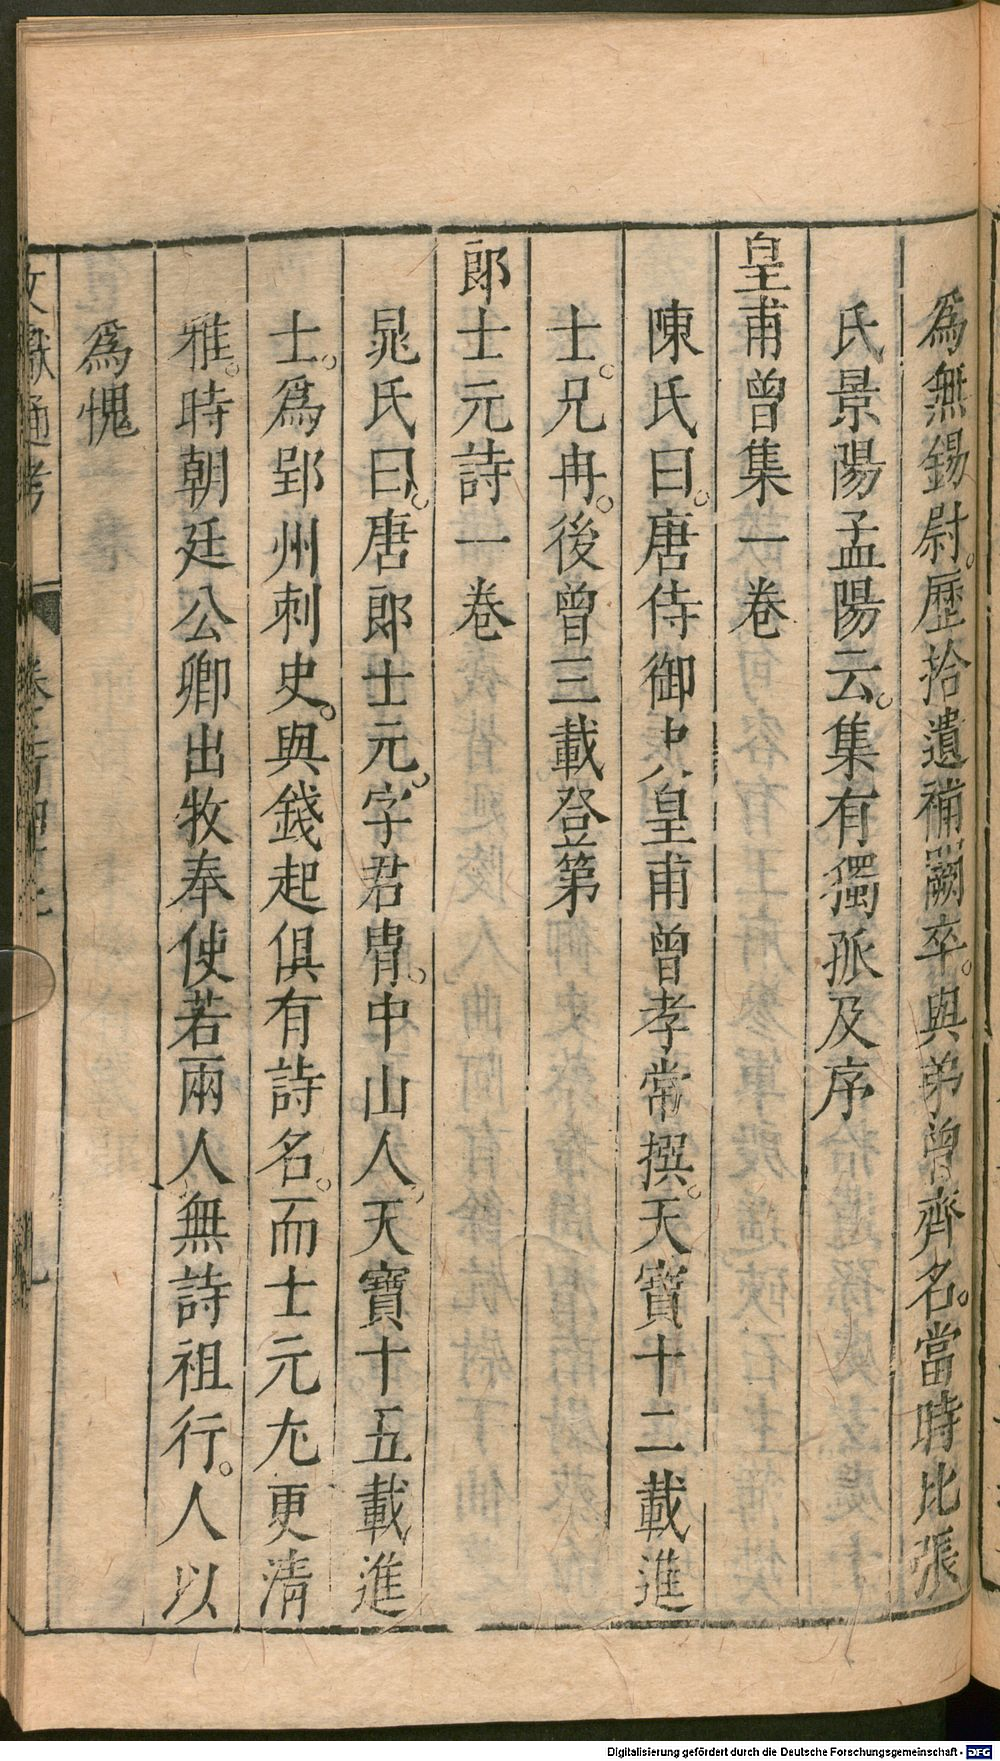 爲無錫尉。歷拾遺補闕卒。與弟曾齊名。當時比張
氏景陽孟陽云。集有獨孤及序
皇甫曾集一卷
陳氏曰。唐侍御史皇甫曾孝常撰。天寶十二載進
士。兄冉。後曾三載登第
郎士元詩一卷
晁氏曰。唐郎士元。字君胄。中山人。天寶十五載進
士。爲郢州刺史。與錢起俱有詩名。而士元尤更清
雅。時朝廷公卿出牧奉使若兩人無詩祖行。人以
爲愧
文獻通考
Digitalisierung gefördert durch die Deutsche Forschungsgemeinschaft - DFG